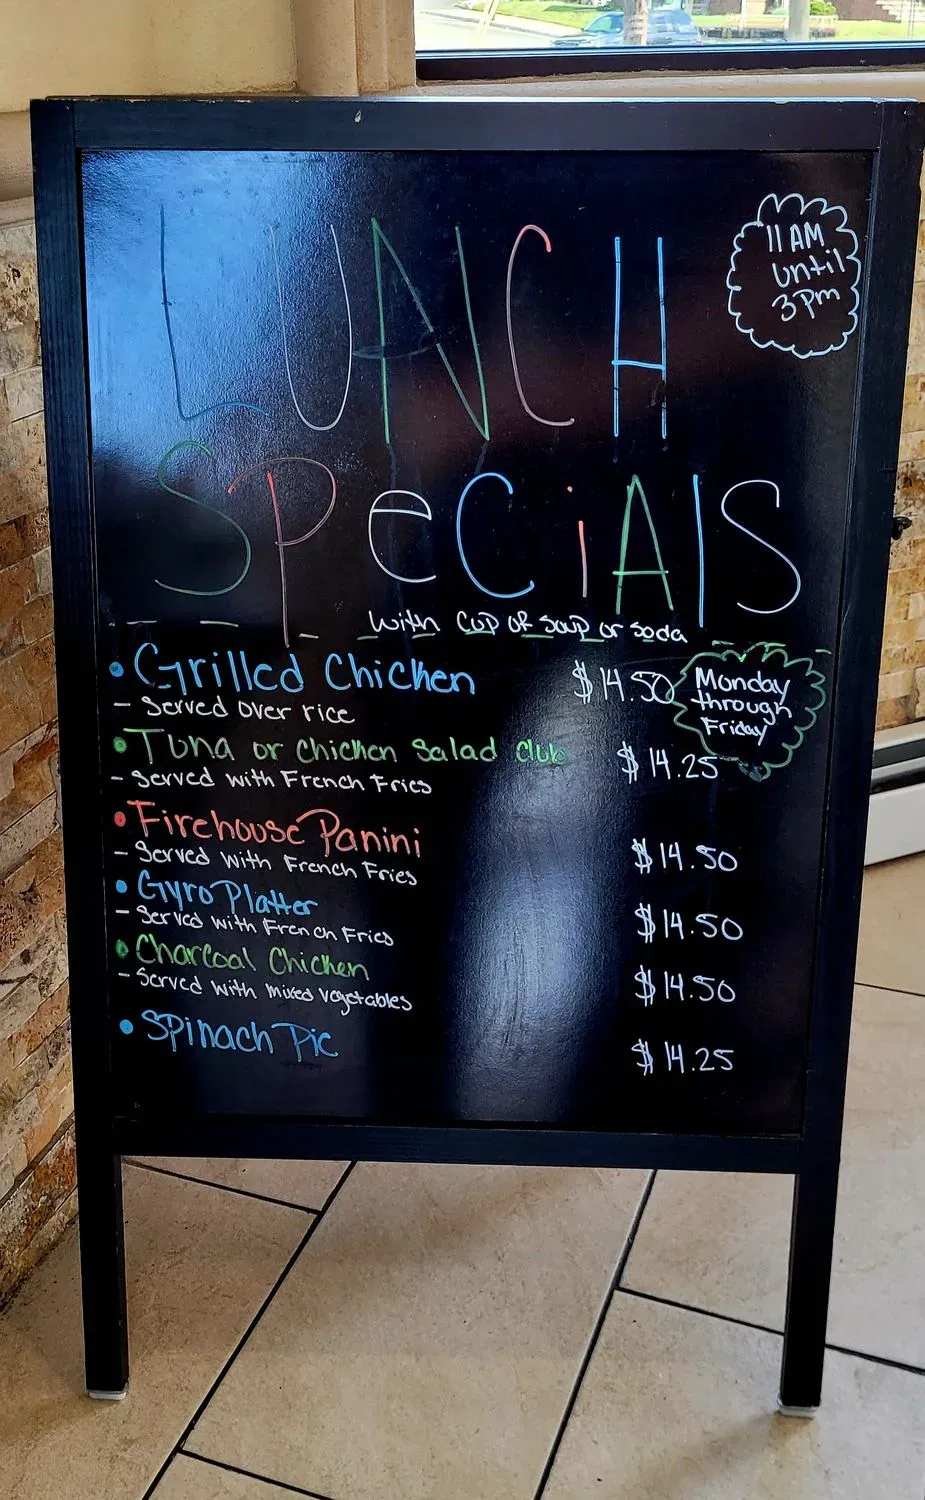 LUNCH
11 AM
until
3pm
SPeCiAlS
with cup of soup or soda
• Grilled Chicken $14.50
Monday
through
Friday
- Served over rice
• Tuna or chicken Salad club $14.25
- Served with French Fries
• Firehouse Panini $14.50
- Served with French Fries
• Gyro Platter $14.50
- Served with French Fries
• Charcoal Chicken $14.50
- Served with mixed vegetables
• Spinach Pie $14.25